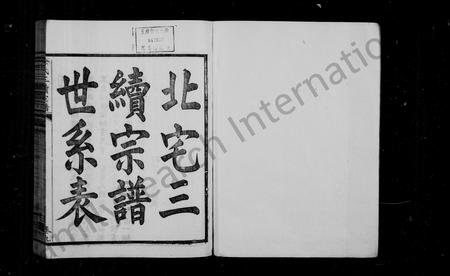 北宅三
續宗譜
世系表
FamilySearch International